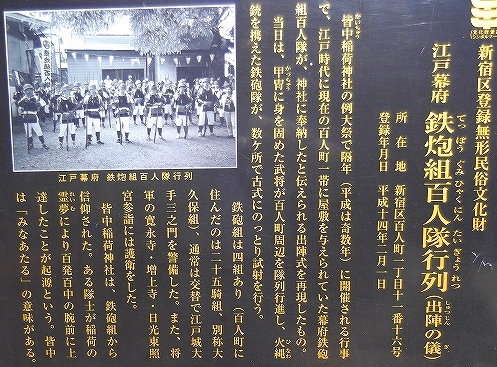 文化財愛護
シンボルマーク
新宿区登録無形民俗文化財
江戸幕府 鉄炮組百人隊行列(出陣の儀)
てっぽう ぐみ ひゃくにん たい ぎょうれつ しゅつじん ぎ
所在地 新宿区百人町一丁目十一番十六号
登録年月日 平成十四年二月一日
皆中稲荷神社の例大祭で隔年(平成は奇数年)に開催される行事
かいちゅう
で、江戸時代に現在の百人町一帯に屋敷を与えられていた幕府鉄砲
組百人隊が、神社に奉納したと伝えられる出陣式を再現したもの。
当日は、甲冑に身を固めた武将が百人町周辺を隊列行進し、火縄
かっちゅう ひなわ
銃を携えた鉄砲隊が、数ケ所で古式にのっとり試射を行う。
鉄炮組は四組あり(百人町に
住んだのは二十五騎組、別称大
久保組)、通常は交替で江戸城大
手三之門を警備した。また、将
軍の寛永寺・増上寺・日光東照
宮参詣には護衛をした。
皆中稲荷神社は、鉄炮組から
信仰された。ある隊士が稲荷の
霊夢により百発百中の腕前に上
れいむ
達したことが起源という。皆中
は「みなあたる」の意味がある。
江戸幕府 鉄炮組百人隊行列